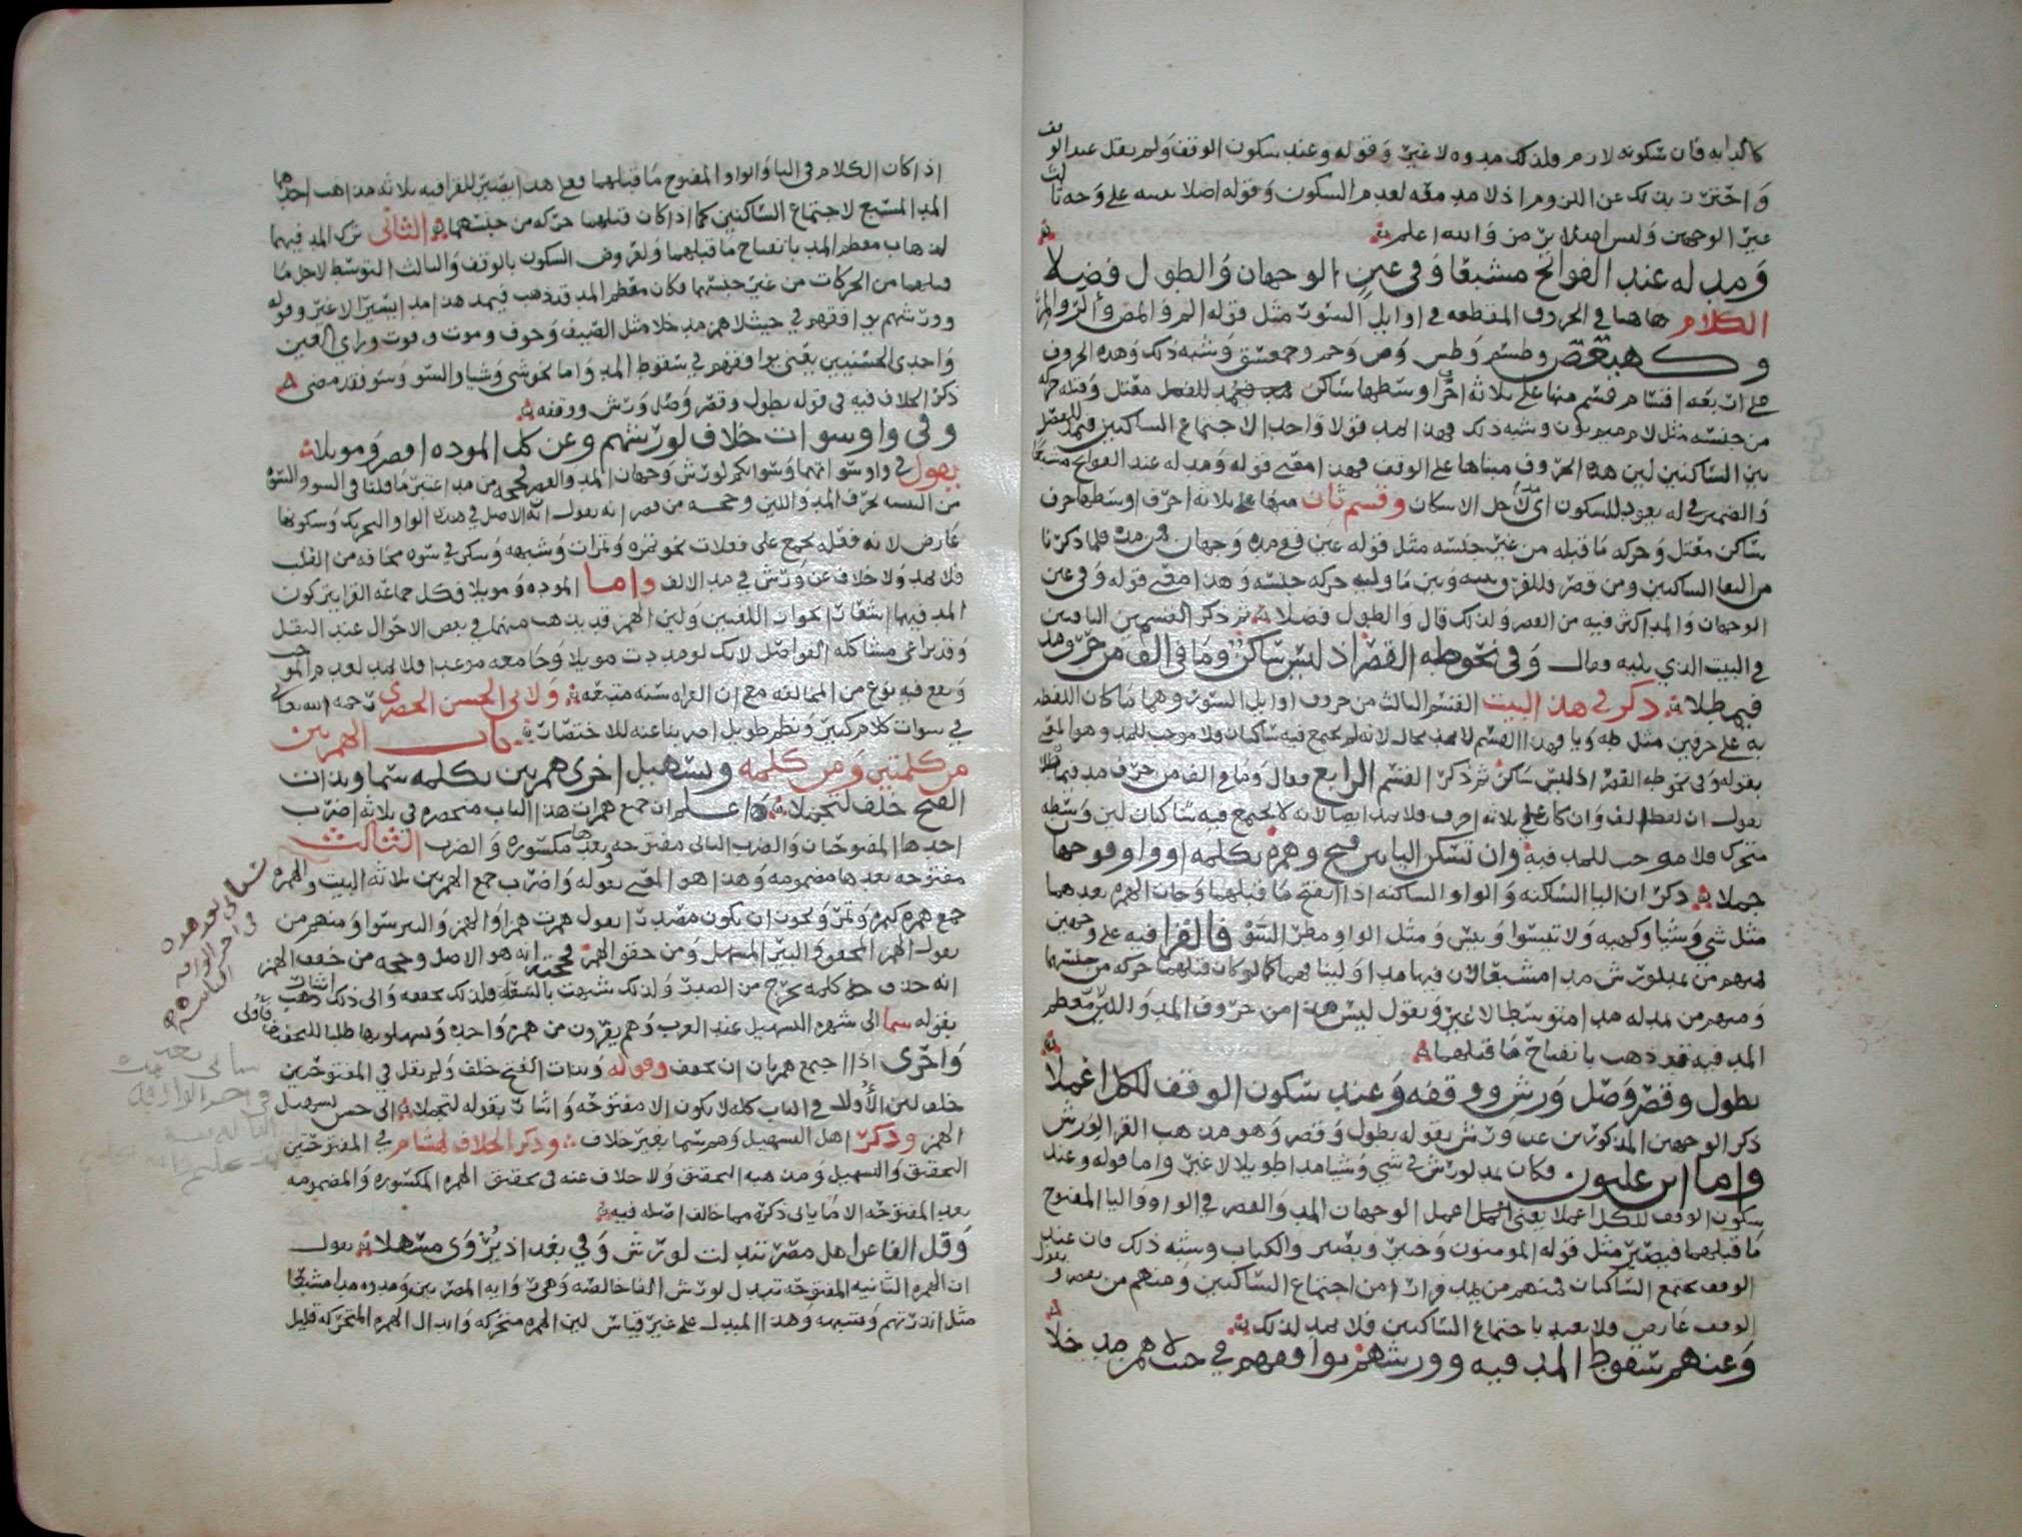 كالدابه فان سكونه لازم ولذلك مدوه لا غير وقوله وعند سكون الوقف ولم يقل عند الوقف
واحترز بذلك عن اللزوم اذ لا مد معه لعدم السكون وقوله اصلا على وجه ثالث
غير الوجهين وليس اصلا والله اعلم
ومد له عند الفواتح مشبعا وفي عين الوجهان والطول فضلا
الكلام هاهنا في الحروف المقطعه في اوايل السور مثل قوله الم والمص والر والمر
وكهيعص وطسم وطس وص وحم وحمعسق وشبه ذلك وهذه الحروف
على اربعه اقسام قسم منها على ثلاثه احرف اوسطها ساكن معتل وقبله حركه
من جنسه مثل لام ميم نون وشبه ذلك فهذا يمد قولا واحدا لاجتماع الساكنين فيمد للفصل
بين الساكنين لان هذه الحروف مبناها على الوقف فهذا معنى قوله ومد له عند الفواتح مشبعا
والضمير في له يعود للسكون اي لاجل الاسكان وقسم ثان منها على ثلاثه احرف اوسطها حرف
ساكن معتل وحركه ما قبله من غير جنسه مثل قوله عين ففي مده وجهان فمن مد فلما ذكرنا
من التقا الساكنين ومن قصر فللفرق بينه وبين ما وليه حركه جنسه وهذا معنى قوله وفي عين
الوجهان والمد اكثر فيه من القصر ولذلك قال والطول فضلا ثم ذكر القسمين الباقيين
في البيت الذي يليه وقال وفي نحو طه القصر اذ ليس ساكن وما في الف من حرف مد
فيمطلا ذكر في هذا البيت القسم الثالث من حروف اوايل السور وهما ما كان اللفظ
به على حرفين مثل طه ويا فهذا القسم لا يمد بحال لانه لم يجتمع فيه ساكنان ولا موجب للمد وهو المعني
بقوله وفي نحو طه القصر اذ ليس ساكن ثم ذكر القسم الرابع فقال وما في الف من حرف مد فيمطلا
يقول ان لفظ الف وان كان على ثلاثه احرف فلا يمد ايضا لانه لا يجتمع فيه ساكنان لان وسطه
متحرك فلا موجب للمد فيه وان تسكن اليا بين فتح وهمزه بكلمه او واو فوجهان
جملا ذكر ان اليا الساكنه والواو الساكنه اذا انفتح ما قبلهما وجات الهمزه بعدهما
مثل شي وشيا وكهيه ولا تيئسوا وييئس ومثل الواو مطر السوء فالقرا فيه على وجهين
فمنهم من يمد لورش مدا مشبعا لان فيها مدا ولينا فهما كما لو كان قبلهما حركه من جنسهما
ومنهم من يمد له مدا متوسطا لا غير ويقول ليس هذا من حروف المد واللين معظم
المد فيه قد ذهب بانفتاح ما قبلهما
بطول وقصر وصل ورش ووقفه وعند سكون الوقف للكل اعملا
ذكر الوجهين المذكورين عند ورش بقوله بطول وقصر وهو مذهب القرا لورش
واما ابن غلبون فكان يمد لورش في شي وشيا مدا طويلا لا غير واما قوله وعند
سكون الوقف للكل اعملا يعني اعمل الوجهان المد والقصر في الواو واليا المفتوح
ما قبلهما فيصير مثل قوله المومنون وخبير وبصير والكتاب وشبه ذلك فان عند
الوقف يجتمع الساكنان فمنهم من يمد فرارا من اجتماع الساكنين ومنهم من يقصر ويقول
الوقف عارض فلا يعتد باجتماع الساكنين فلا يمد لذلك
وعنهم سقوط المد فيه وورشهم يوافقهم في حيث لا همز مدخلا
اذا كان الكلام في اليا والواو المفتوح ما قبلهما فعلى هذا يصير للقرا فيه ثلاثه مذاهب احدها
المد المشبع لاجتماع الساكنين كما اذا كان قبلهما حركه من جنسهما الثاني ترك المد فيهما
لذهاب معظم المد بانفتاح ما قبلهما ولعروض السكون بالوقف والثالث التوسط لاجل ما
قبلهما من الحركات من غير جنسهما فكان معظم المد قد ذهب فيمد هذا مدا يسيرا لا غير وقوله
وورشهم يوافقهم في حيث لا همز مدخلا مثل الصيف وخوف وموت وفوت وراي العين
واحدى الحسنيين يعني يوافقهم في سقوط المد واما نحو شي وشيا والسو وسو فقد مضى
ذكر الخلاف فيه في قوله بطول وقصر وصل ورش ووقفه
وفي واو سوات خلاف لورشهم وعن كل الموده اقصر وموئلا
يقول في واو سواتهما وسواتكم لورش وجهان المد والقصر فحجه من مد اعتبر ما قلنا في السو والسوء
من حرف المد واللين وحجه من قصر انه يقول ان الاصل في هذه الواو التحريك وسكونها
عارض لانه فعله تجمع على فعلات نحو تمره وتمرات وشبهه وسكن في سوه مخافه من القلب
فلا يمد ولا خلاف عن ورش في مد الالف واما الموده وموئلا فكل جماعه القرا يتركون
المد فيها اشعارا بجواز اللغتين ولان الهمز قد يذهب منهما في بعض الاحوال عند النقل
وقد يراعى مشاكله الفواصل لانك لو مددت موئلا وجا معه موعدا فلا يمد لعدم الموجب
وقع فيه نوع من المخالفه مع ان القراه سنه متبعه ولابي الحسن الحصري رحمه الله تعالى
في سوات كلام كبير ونظم طويل اضربنا عنه للاختصار باب الهمزتين
من كلمتين ومن كلمه وتسهيل اخرى همزتين بكلمه سما وبذات
الفتح خلف لتجملا اعلم ان جمع همزات هذا الباب منحصره في ثلاثه اضرب
احدها المفتوحتان والضرب الثاني مفتوحه وبعدها مكسوره والضرب الثالث
مفتوحه بعدها مضمومه وهذا هو المعني بقوله واضرب جمع الهمزتين ثلاثه البيت والهمزه
جمع همزه كتمره وتمر ويجوز ان يكون مصدرا يقول همزت همزا والهمز والنبر سوا ومنهم من
يقول الهمز المحقق والنبر المسهل ومن حقق الهمز فحجته انه هو الاصل وحجه من خفف الهمز
انه حذف كلمه تخرج من الصدر ولذلك شبهت بالسعله فلذلك تخففه والى ذلك ذهب اشار
بقوله سما الى شهره التسهيل عند العرب وهم يفرون من همزه واحده ويسهلونها طلبا للتخفيف فاولى
واحرى اذا اجتمع همزتان ان تخفف وقوله وبذات الفتح خلف ولم يقل في المفتوحتين
خلف لان الاولى في الباب كله لا يكون الا مفتوحه واشار بقوله لتجملا الى حسن تسهيل
الهمز وذكر اهل التسهيل وهم سما بغير خلاف وذكر الخلاف لهشام في المفتوحتين
التحقيق والتسهيل ومذهبه التحقيق ولا خلاف عنه في تحقيق الهمزه المكسوره والمضمومه
بعد المفتوحه الا ما ياتي ذكره مما خالف اصله فيه
وقل الفا عن اهل مصر تبدلت لورش وفي بغداد يروى مسهلا يقول
ان الهمزه الثانيه المفتوحه تبدل لورش الفا خالصه وهي روايه المصريين ومدوه مدا مشبعا
مثل اانذرتهم وشبهه وهذا البدل على غير قياس لان الهمزه متحركه وابدال الهمزه المتحركه قليل